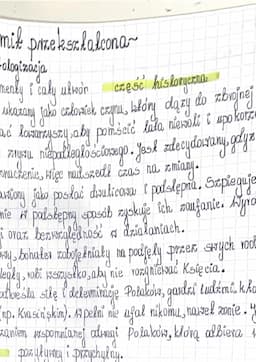 mit przekształcona~
ologizacja
menty i cały utwór część historyczna
ukazany jako człowiek czynu, który dąży do zbrojnej
ać towarzyszy, aby pomścić lata niewoli i upokorze
zrywu niepodległościowego. Jest zdecydowany, gdyż
znaczenie, więc nadszedł czas na zmiany.
awiony jako postać dwulicowa i podstępna. Szpieguje
nie w podstępny sposób zyskuje ich zaufanie. Wyra
i oraz bezwzględność w działaniach.
wy, bohater zobojętniały na podjęty przez swych rod
legły, robi wszystko, aby nie rozgniewać Księcia.
odkreśla siłę i determinację Polaków, gardzi ludźmi, któ
(np. Krasińskim). W pełni nie ufał nikomu, nawet żonie.
zaniem wspomnianej odwagi Polaków, którą odbiera w
pozytywny i przychylny.